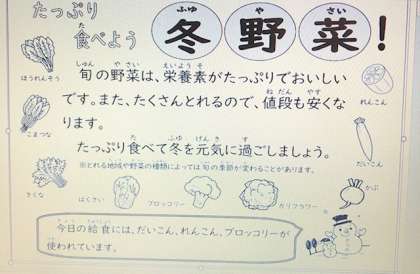 たっぷり
食べよう
冬野菜!
旬の野菜は、栄養素がたっぷりでおいしい
です。また、たくさんとれるので、値段も安くな
ります。
たっぷり食べて冬を元気に過ごしましょう。
※とれる地域や野菜の種類によっては旬の季節が変わることがあります。
ほうれんそう
こまつな
きくな
はくさい
ブロッコリー
カリフラワー
れんこん
だいこん
かぶ
今日の給食には、だいこん、れんこん、ブロッコリーが
使われています。